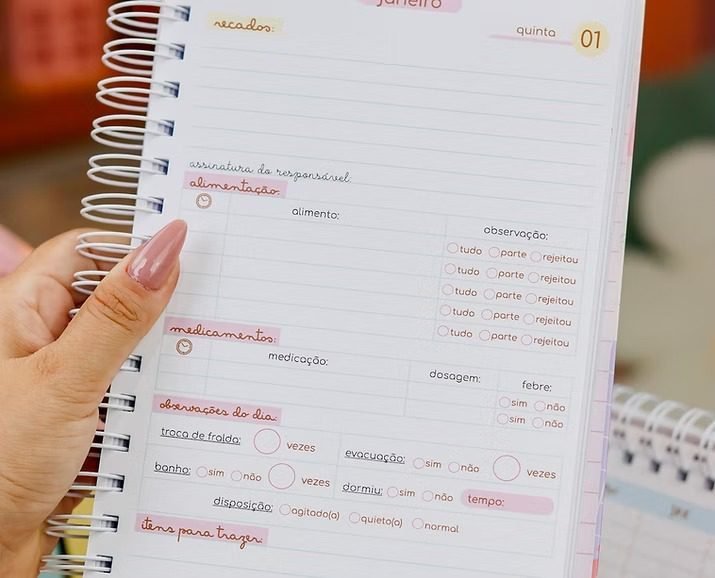 janeiro
recados:
quinta 01
assinatura do responsável:
alimentação:
alimento: observação:
tudo parte rejeitou
tudo parte rejeitou
tudo parte rejeitou
tudo parte rejeitou
tudo parte rejeitou
medicamentos:
medicação: dosagem: febre:
sim não
sim não
observações do dia:
troca de fralda: vezes evacuação: sim não vezes
banho: sim não vezes dormiu: sim não tempo:
disposição: agitado(a) quieto(a) normal
itens para trazer: